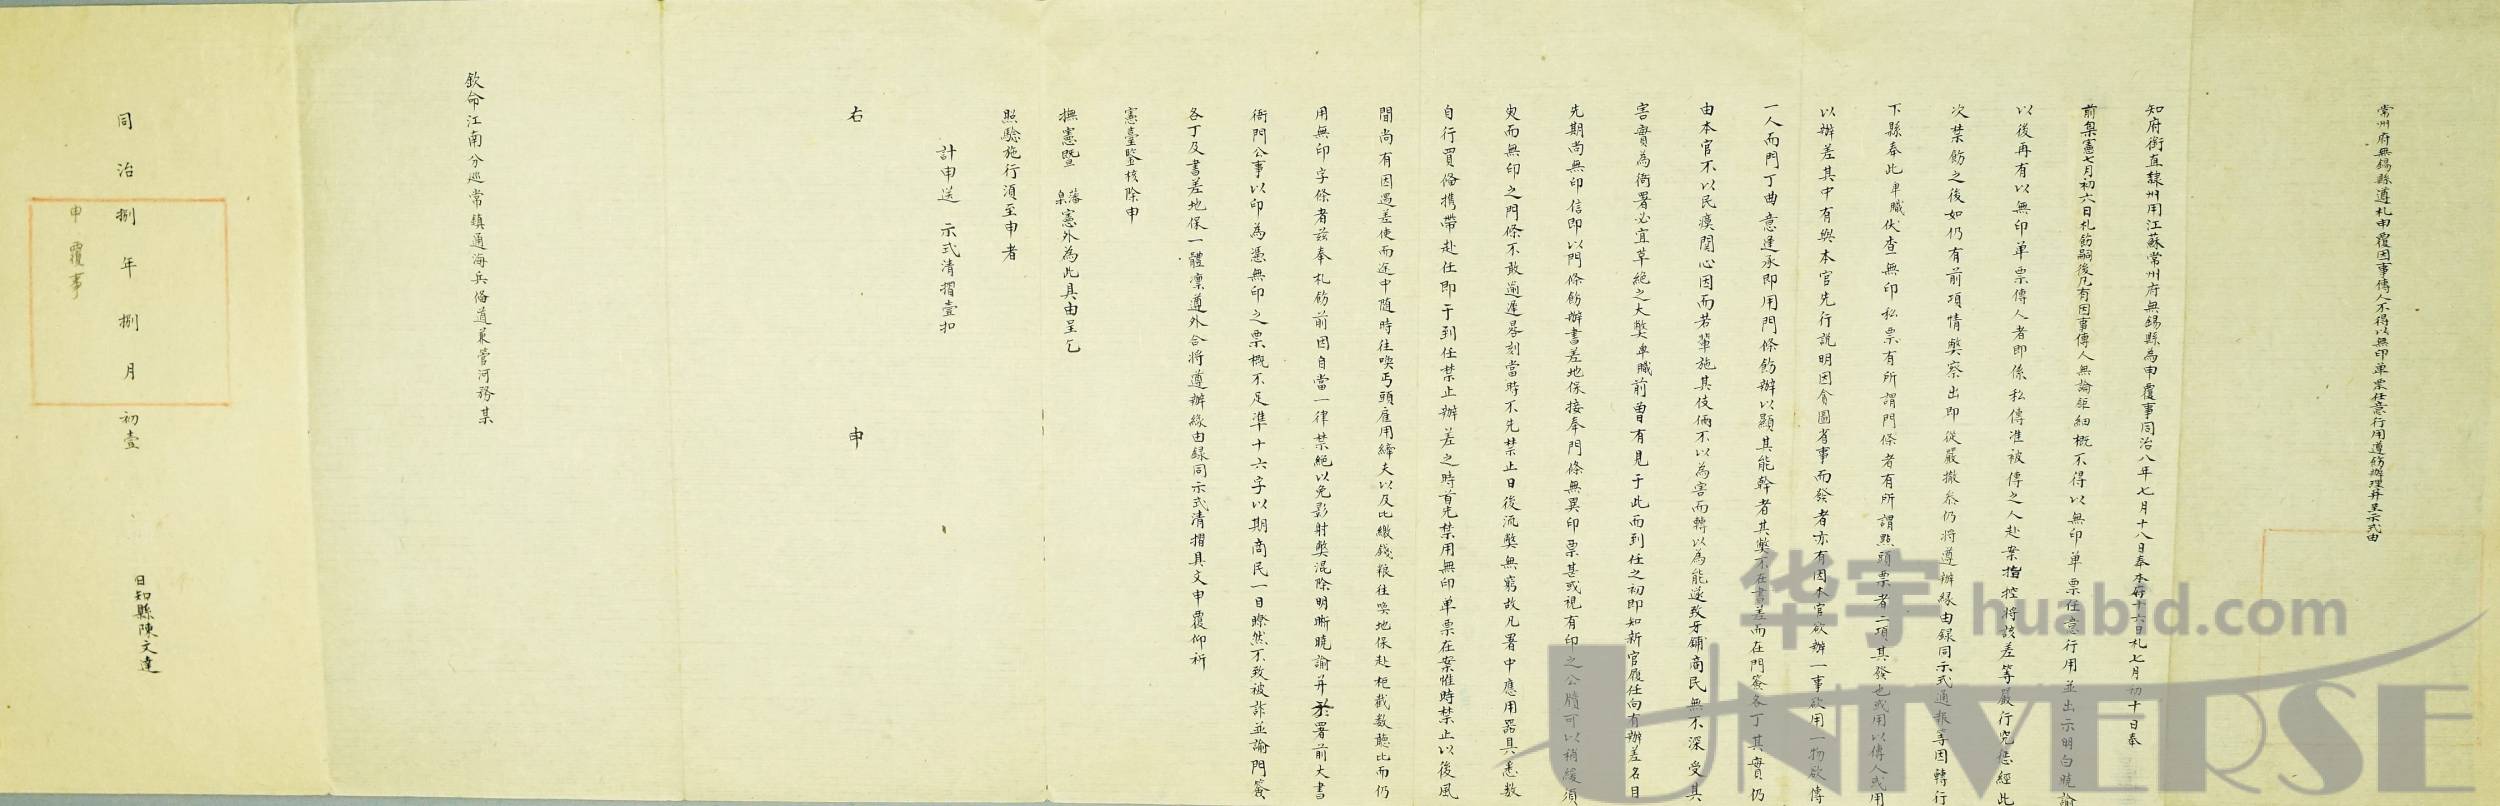 常州府無錫縣遵札申覆因事傳人不得以無印單票任意行用遵飭辦理并呈示式由
知府銜直隸州用江蘇常州府無錫縣為申覆事同治八年七月十八日奉本府十六日札七月初十日奉
前臬憲七月初六日札飭嗣後凡有因事傳人無論鉅細概不得以無印單票任意行用並出示明白曉諭
以後再有以無印單票傳人者即係私傳准被傳之人赴案指控將該差等嚴行究懲經此
次禁飭之後如仍有前項情弊察出即從嚴撤參仍將遵辦緣由錄同示式通報等因轉行
下縣奉此卑職伏查無印私票有所謂門條者有所謂點頭票者二項其發也或用以傳人或用
以辦差其中有與本官先行說明因貪圖省事而發者亦有因本官欲辦一事欲用一物欲傳
一人而門丁曲意逢承即用門條飭辦以顯其能幹者其弊不在書差而在門簽各丁其實仍
由本官不以民瘼関心因而若輩施其伎倆不以為害而轉以為能遂致牙鋪商民無不深受其
害實為衙署必宜草絕之大弊卑職前曾有見于此而到任之初即知新官履任向有辦差名目
先期尚無印信即以門條飭辦書差地保接奉門條無異印票甚或視有印之公牘可以稍緩須
臾而無印之門條不敢逾遲晷刻當時不先禁止日後流弊無窮故凡署中應用器具悉數
自行買備携帶赴任即于到任禁止辦差之時首先禁用無印单票在案惟時禁止以後風
聞尚有因過差使而途中隨時往喚丐頭雇用縴夫以及比繳錢粮往喚地保赴柜截数聽比而仍
用無印字條者茲奉札飭前因自當一律禁絕以免影射弊混除明晰曉諭并於署前大書
衙門公事以印為憑無印之票概不足準十六字以期商民一目瞭然不致被詐並諭門簽
各丁及書差地保一體凛遵外合將遵辦緣由錄同示式清摺具文申覆仰祈
憲臺鑒核除申
撫憲暨藩臬憲外為此具由呈乞
照驗施行須至申者
計申送 示式清摺壹扣
右 申
欽命江南分巡常鎮通海兵備道兼管河務某
同治捌年捌月初壹
日知縣陳文達
申覆事
华宇 huabid.com
UNIVERSE